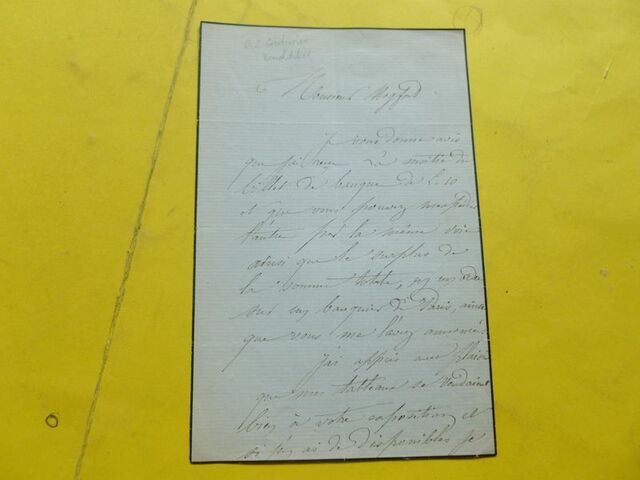 Monsieur Mogford
Je vous donne avis
que j'ai reçu la moitié du
billet de banque de L. 10
et que vous pouvez
l'autre par la même voie
ainsi que le surplus de
la somme totale, en un ordre
sur un banquier de Paris, ainsi
que vous me l'avez annoncé.
J'ai appris avec plaisir
que mes tableaux se vendaient
bien à votre exposition et
si j'en ai de disponibles je